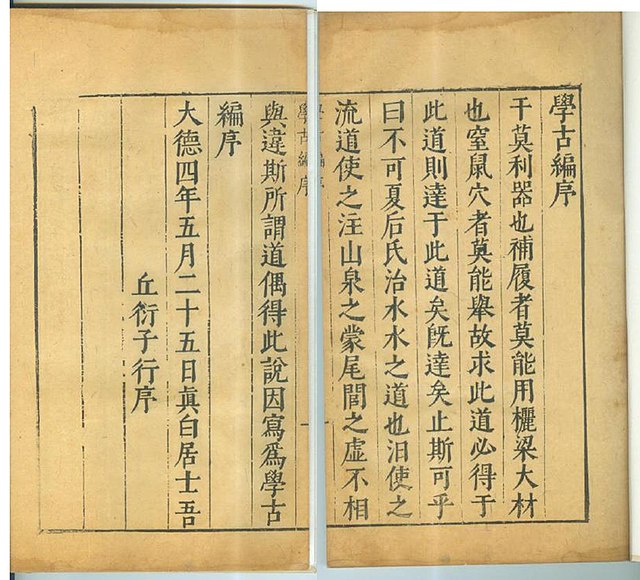 學古編序
干莫利器也補履者莫能用欐梁大材
也窒鼠穴者莫能舉故求此道必得于
此道則達于此道矣既達矣止斯可乎
曰不可夏后氏治水水之道也汨使之
流道使之注山泉之蒙尾閭之虛不相
學古編序
學古編序
與違斯所謂道偶得此說因寫爲學古
編序
大德四年五月二十五日眞白居士吾
丘衍子行序